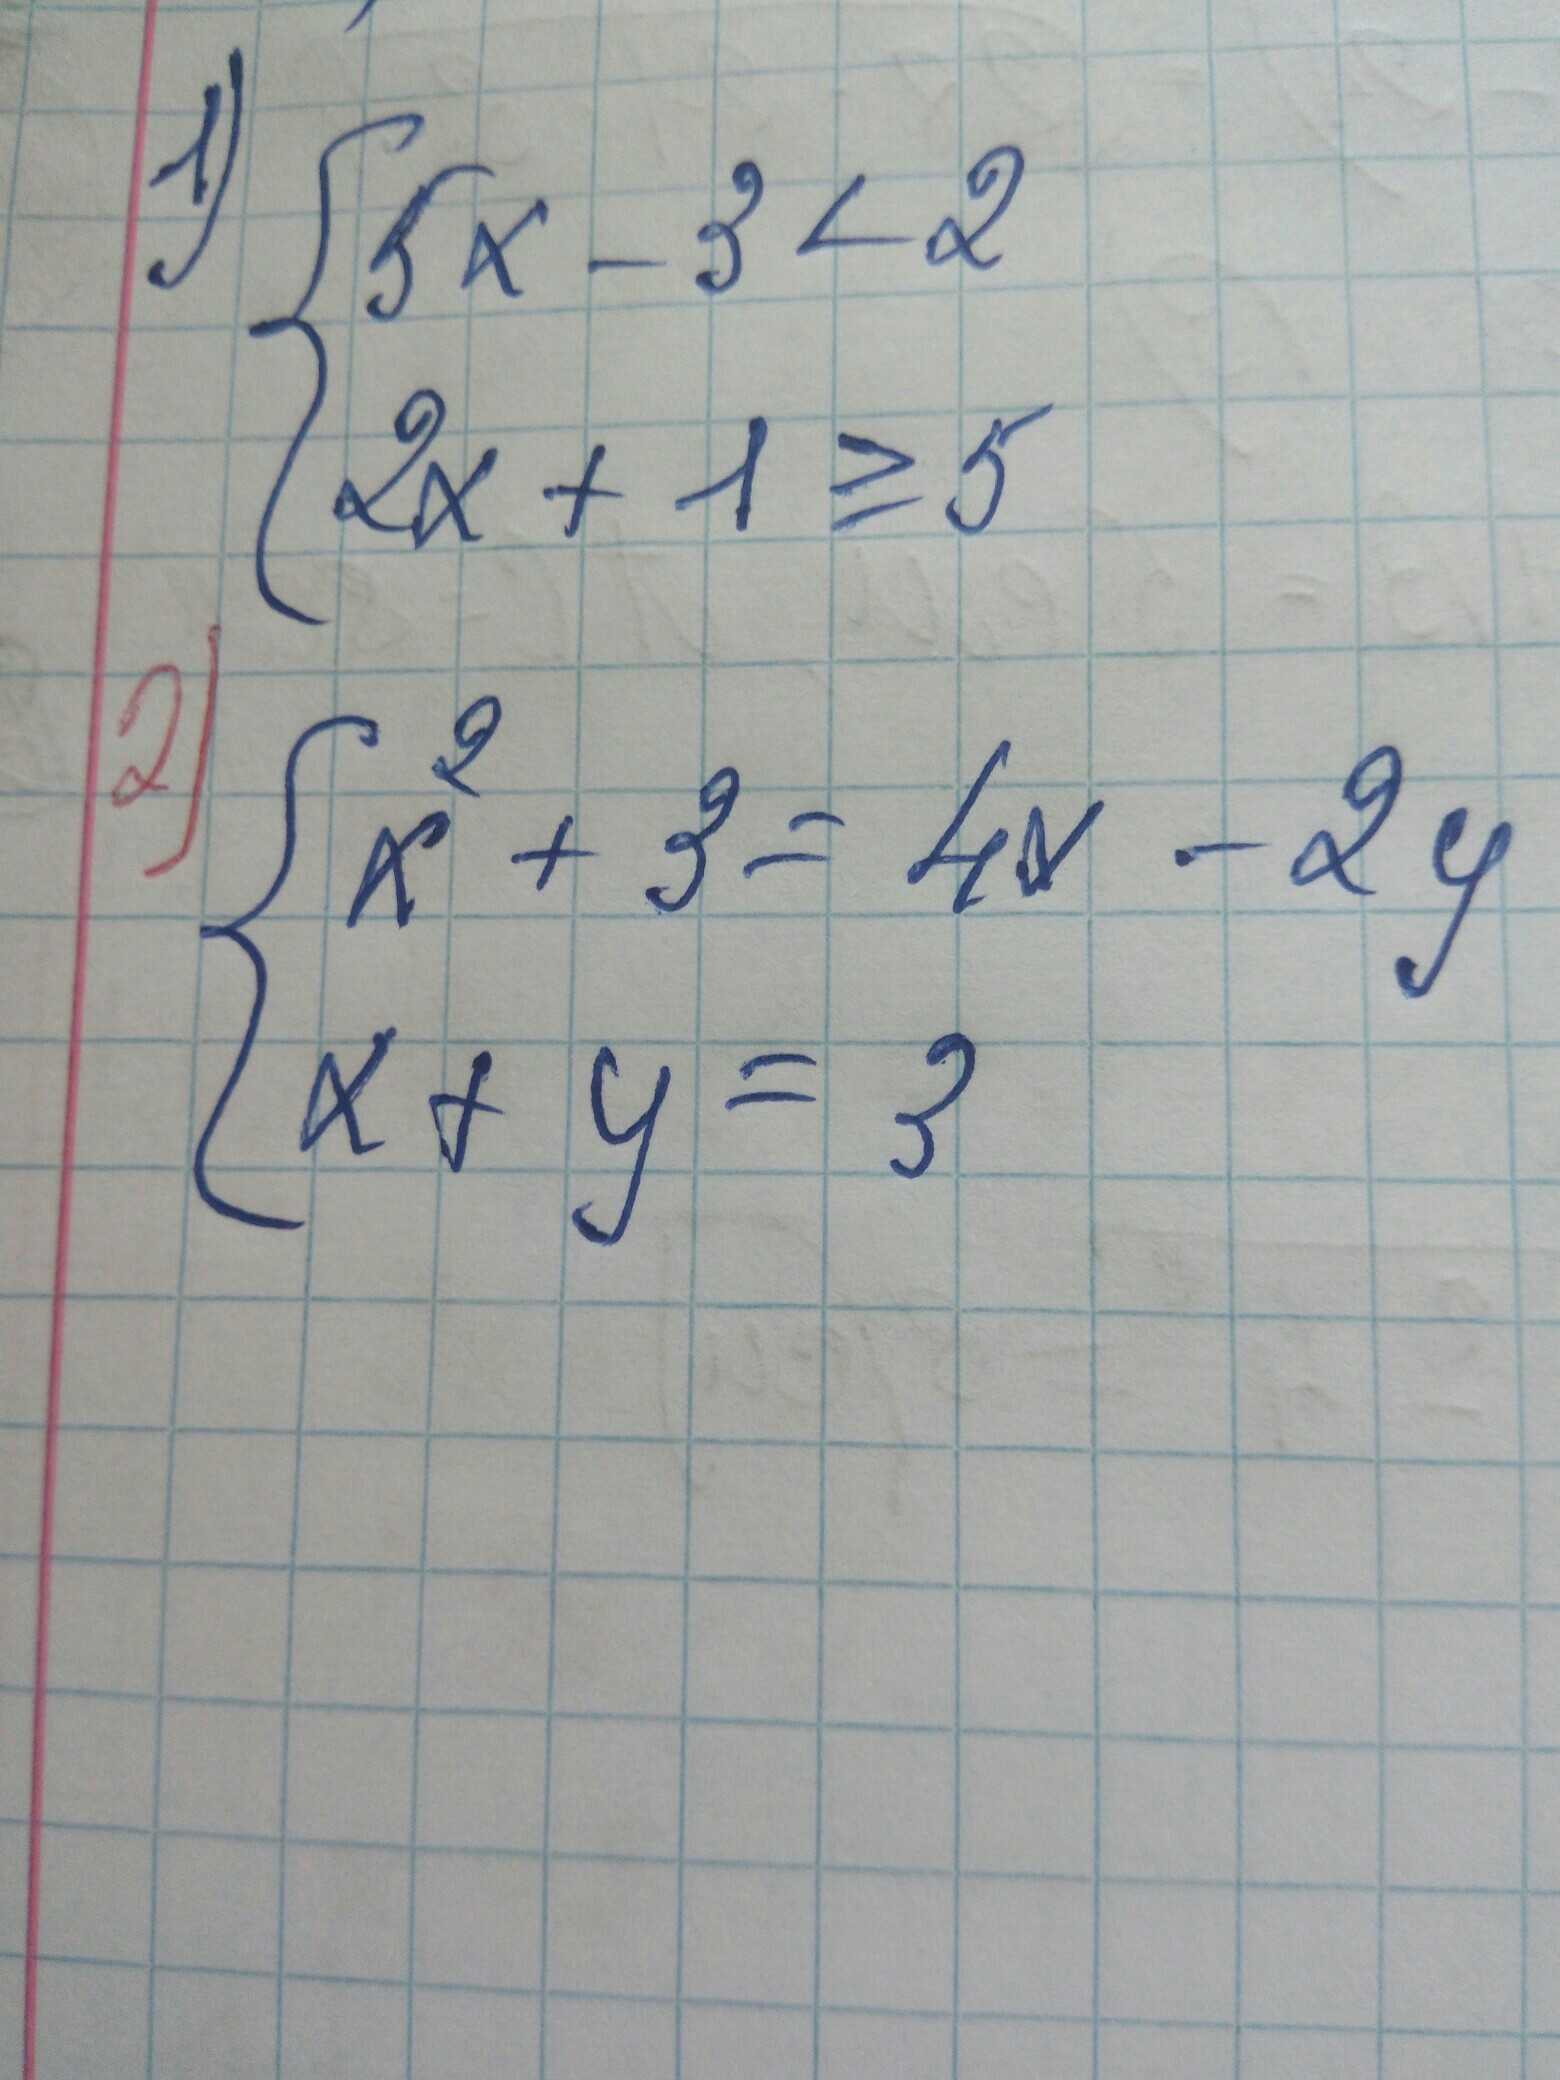 1) { 5x - 3 < 2
2x + 1 ≥ 5
2) { x² + 3 = 4x - 2y
x + y = 3